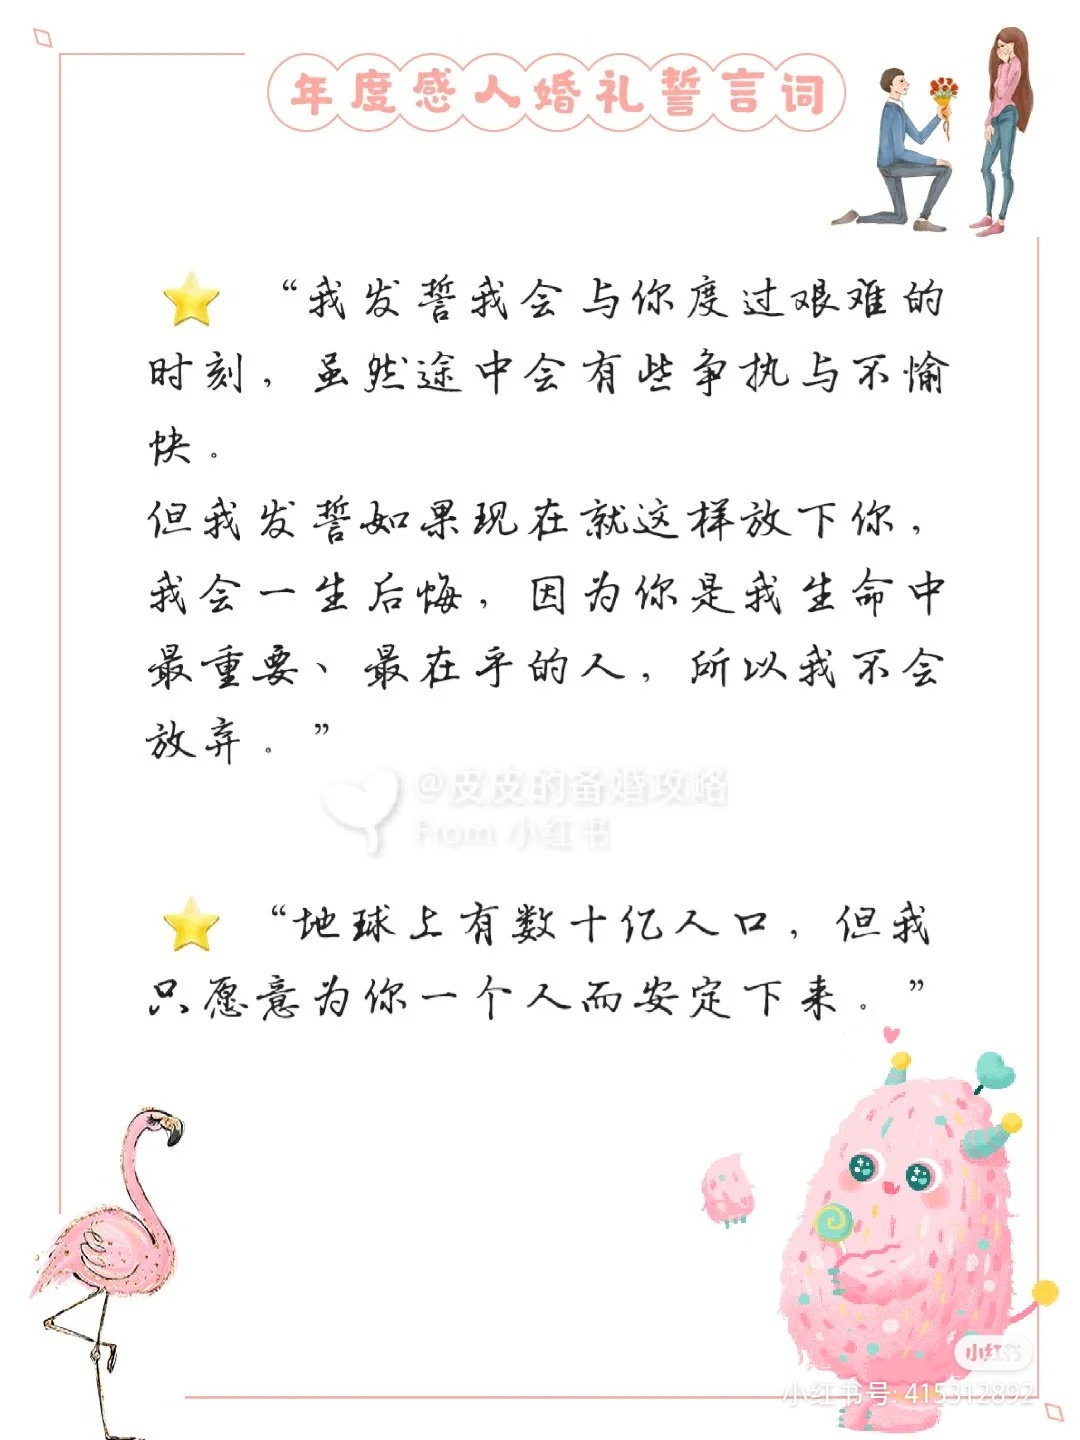 年度感人婚礼誓言词
“我发誓我会与你度过艰难的
时刻，虽然途中会有些争执与不愉
快。
但我发誓如果现在就这样放下你，
我会一生后悔，因为你是我生命中
最重要、最在乎的人，所以我不会
放弃。”
@皮皮的备婚攻略
From 小红书
“地球上有数十亿人口，但我
只愿意为你一个人而安定下来。”
小红书
小红书号: 415312892